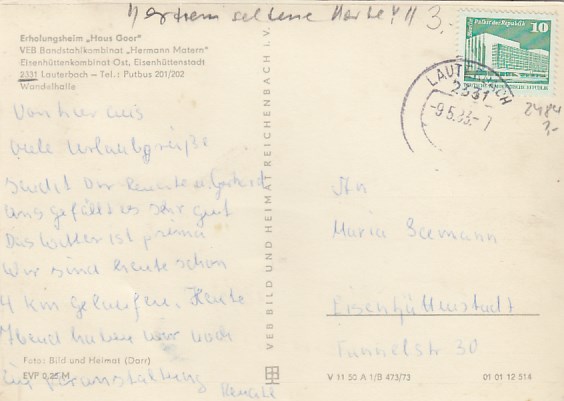 seltene Karte!!! 3.-
Erholungsheim „Haus Goor"
VEB Bandstahlkombinat „Hermann Matern"
Eisenhüttenkombinat Ost, Eisenhüttenstadt
2331 Lauterbach – Tel.: Putbus 201/202
Wandelhalle
Palast der Republik 10
DEUTSCHE DEMOKRATISCHE REPUBLIK
LAUTERBACH
2331
-9.5.83.-7
2484
Von hier aus
viele Urlaubsgrüße
sendet Dir Renate u. Gerhard
Uns gefällt es sehr gut
Das Wetter ist prima
Wir sind heute schon
4 km gelaufen. Heute
Abend haben wir noch
eine Veranstaltung
Renate
VEB BILD UND HEIMAT REICHENBACH I. V.
An
Maria Seemann
Eisenhüttenstadt
Tunnelstr 30
Foto: Bild und Heimat (Darr)
EVP 0,25 M
V 11 50 A 1/B 473/73
01 01 12 514